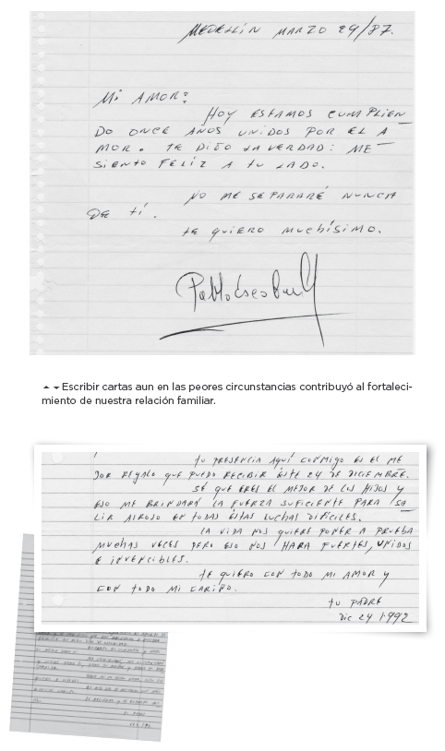 MEDELLÍN MARZO 29/87.
MI AMOR:
HOY ESTAMOS CUMPLIEN
DO ONCE AÑOS UNIDOS POR EL A
MOR. TE DIGO LA VERDAD: ME
SIENTO FELIZ A TU LADO.
NO ME SEPARARÉ NUNCA
DE TÍ.
TE QUIERO MUCHÍSIMO.
Pablo Escobar G
Escribir cartas aun en las peores circunstancias contribuyó al fortaleci-
miento de nuestra relación familiar.
TU PRESENCIA AQUÍ CONMIGO ES EL ME
JOR REGALO QUE PUEDO RECIBIR ÉSTE 24 DE DICIEMBRE.
SÉ QUE ERES EL MEJOR DE LOS HIJOS Y
ESO ME BRINDARÁ LA FUERZA SUFICIENTE PARA SA
LIR AIROSO EN TODAS ÉSTAS LUCHAS DIFÍCILES.
LA VIDA NOS QUIERE PONER A PRUEBA
MUCHAS VECES PERO ESO NOS HARÁ FUERTES, UNIDOS
E INVENCIBLES.
TE QUIERO CON TODO MI AMOR Y
CON TODO MI CARIÑO.
TU PADRE
DIC 24 1992